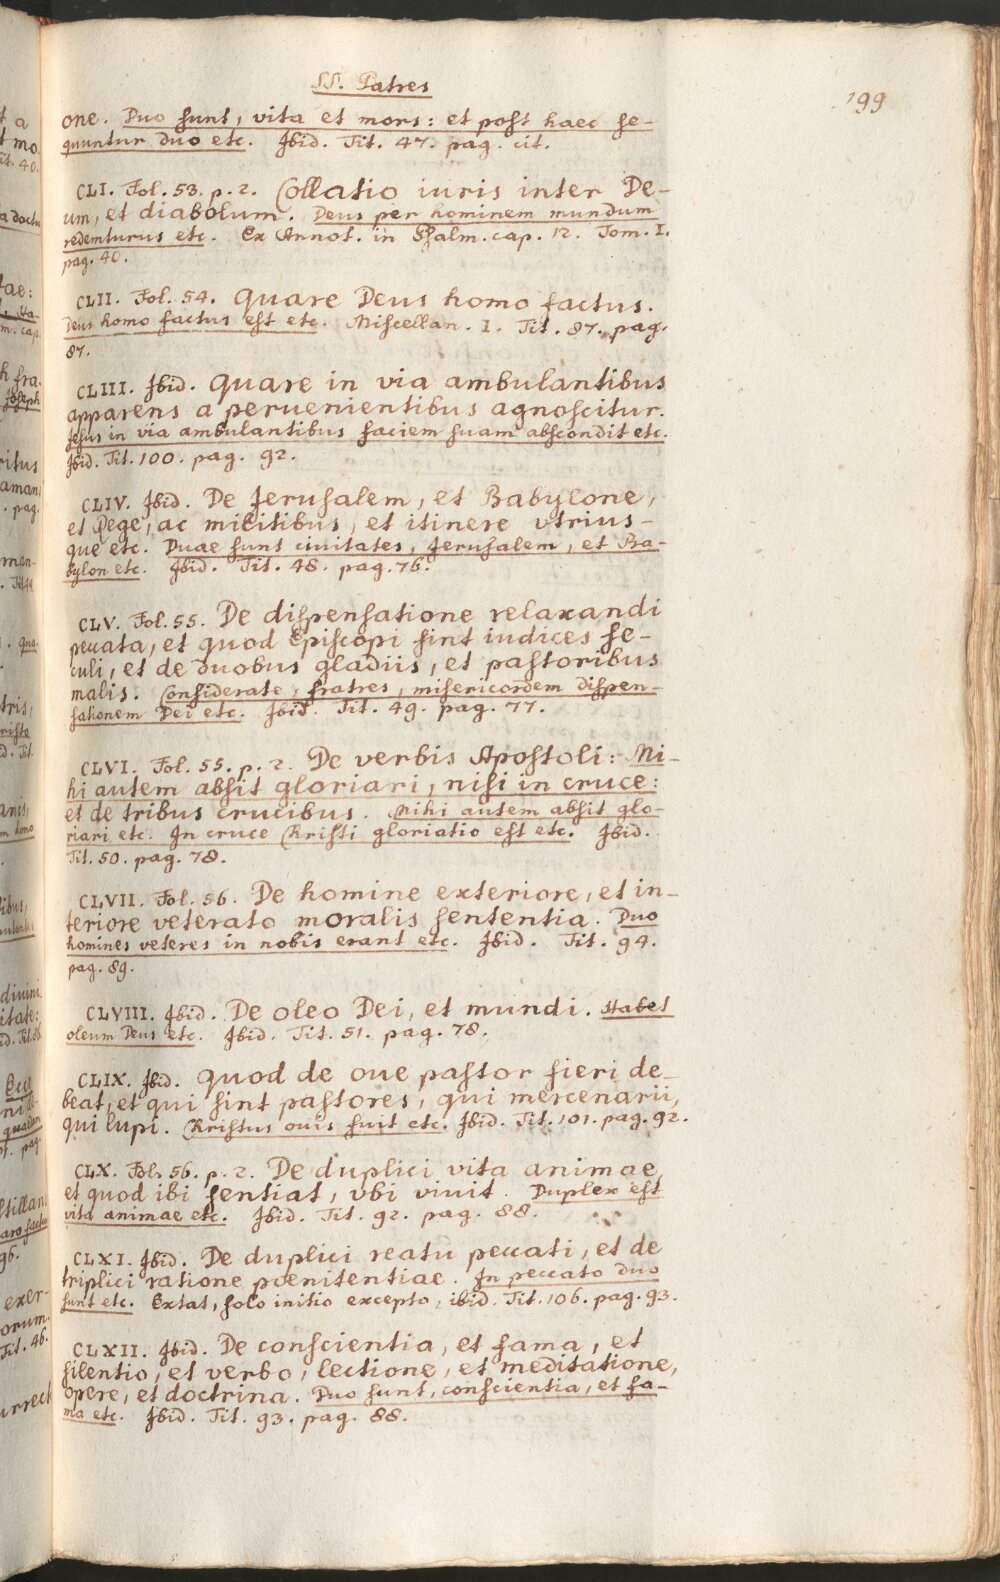 SS. Patres
199
one. Duo sunt, vita et mors: et post haec se-
quuntur duo etc. Ibid. Tit. 47. pag. cit.
CLI. Fol. 53. p. 2. Collatio iuris inter De-
um, et diabolum. Deus per hominem mundum
redemturus etc. Ex Annot. in Psalm. cap. 12. Tom. I.
pag. 40.
CLII. Fol. 54. Quare Deus homo factus.
Deus homo factus est etc. Miscellan. I. Tit. 87. pag.
87.
CLIII. Ibid. Quare in via ambulantibus
apparens a peruenientibus agnoscitur.
Jesus in via ambulantibus faciem suam abscondit etc.
Ibid. Tit. 100. pag. 92.
CLIV. Ibid. De Jerusalem, et Babylone,
et Rege, ac militibus, et itinere vtrius-
que etc. Duae sunt ciuitates, Jerusalem, et Ba-
bylon etc. Ibid. Tit. 48. pag. 76.
CLV. Fol. 55. De dispensatione relaxandi
peccata, et quod Episcopi sint iudices se-
culi, et de duobus gladiis, et pastoribus
malis. Considerate, fratres, misericordem dispen-
sationem Dei etc. Ibid. Tit. 49. pag. 77.
CLVI. Fol. 55. p. 2. De verbis Apostoli: Mi-
hi autem absit gloriari, nisi in cruce:
et de tribus crucibus. Mihi autem absit glo-
riari etc. In cruce Christi gloriatio est etc. Ibid.
Tit. 50. pag. 78.
CLVII. Fol. 56. De homine exteriore, et in-
teriore veterato moralis sententia. Duo
homines veteres in nobis erant etc. Ibid. Tit. 94.
pag. 89.
CLVIII. Ibid. De oleo Dei, et mundi. Habet
oleum Deus etc. Ibid. Tit. 51. pag. 78.
CLIX. Ibid. Quod de oue pastor fieri de-
beat, et qui sint pastores, qui mercenarii,
qui lupi. Christus ouis fuit etc. Ibid. Tit. 101. pag. 92.
CLX. Fol. 56. p. 2. De duplici vita animae
et quod ibi sentiat, vbi viuit. Duplex est
vita animae etc. Ibid. Tit. 92. pag. 88.
CLXI. Ibid. De duplici reatu peccati, et de
triplici ratione poenitentiae. In peccato duo
sunt etc. Extat, solo initio excepto, ibid. Tit. 106. pag. 93.
CLXII. Ibid. De conscientia, et fama, et
silentio, et verbo, lectione, et meditatione,
opere, et doctrina. Duo sunt, conscientia, et fa-
ma etc. Ibid. Tit. 93. pag. 88.